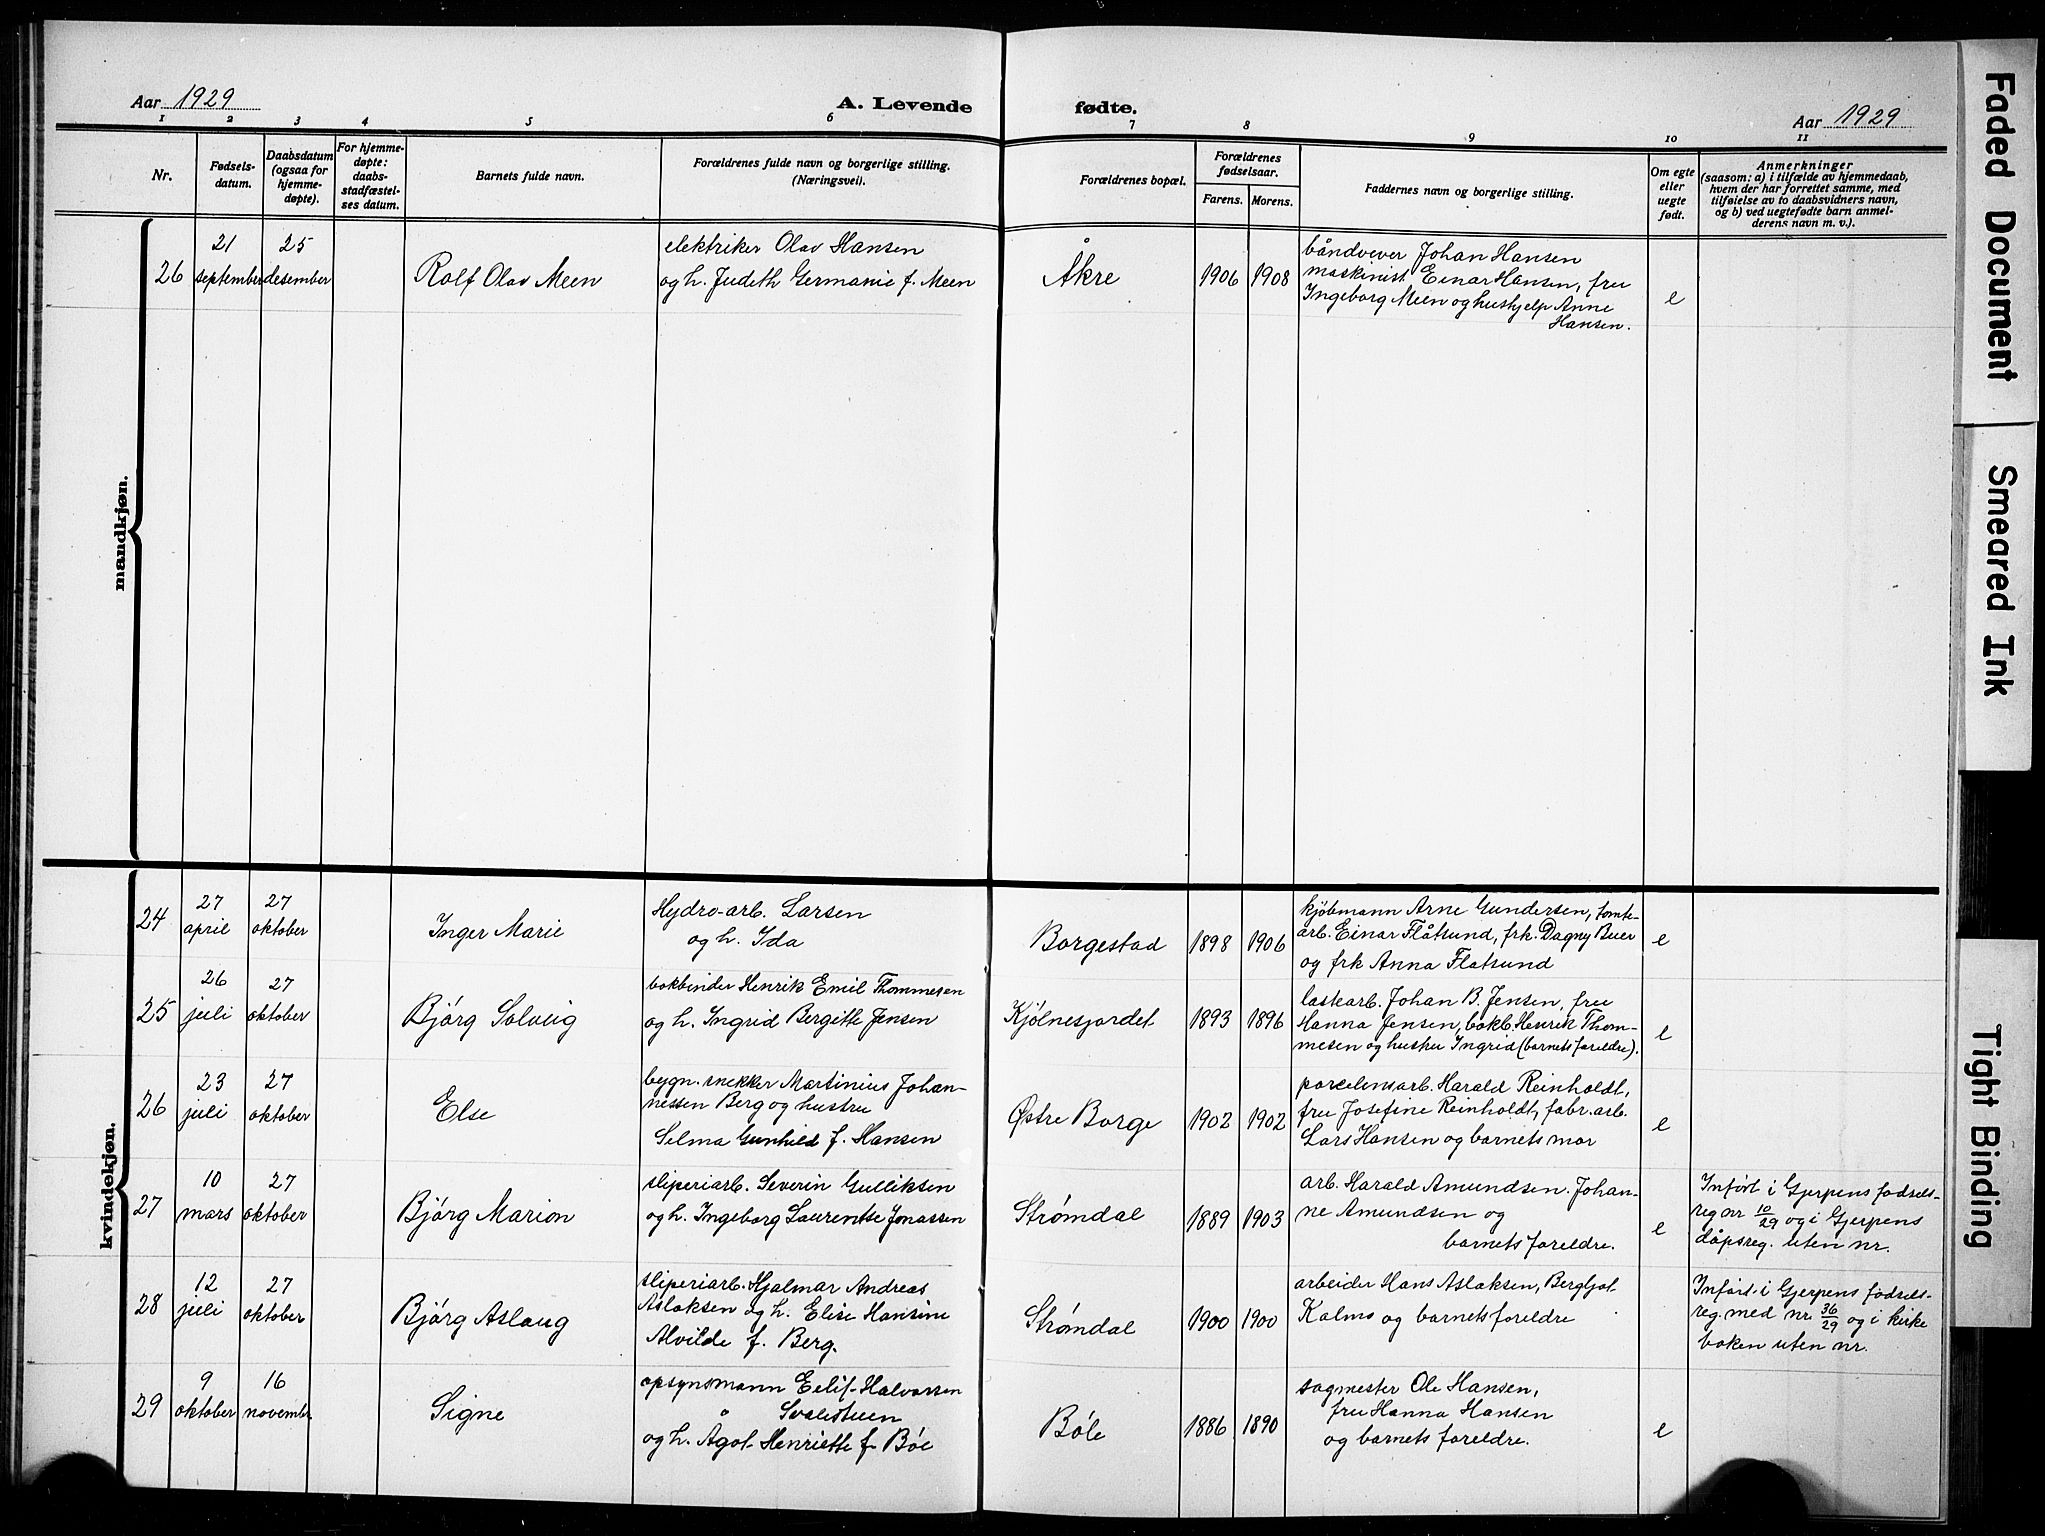 Aar 1929
A. Levende fødte.
Aar 1929
1 2 3 4 5 6 7 8 9 10 11
Nr.
Fødsels-
datum.
Daabsdatum
(ogsaa for
hjemme-
døpte).
For hjemme-
døpte:
daabs-
stadfæstel-
ses datum.
Barnets fulde navn.
Forældrenes fulde navn og borgerlige stilling.
(Næringsvei).
Forældrenes bopæl.
Forældrenes
fødselsaar.
Farens. Morens.
Faddernes navn og borgerlige stilling.
Om egte
eller
uegte
født.
Anmerkninger
(saasom: a) i tilfælde av hjemmedaab,
hvem der har forrettet samme, med
tilføielse av to daabsvidners navn,
og b) ved uegtefødte barn anmel-
derens navn m. v.).
mandkjøn.
26
21
september
25
desember
Rolf Olav Meen
elektriker Olav Hansen
og h. Judeth Germanie f. Meen
Åkre
1906
1908
båndvever Johan Hansen
maskinist Einar Hansen, fru
Ingeborg Meen og hushjelp Anne
Hansen.
e
kvindekjøn.
24
27
april
27
oktober
Inger Marie
Hydro-arb. Larsen
og h. Ida
Borgestad
1898
1906
kjöbmann Arne Gundersen, tomte-
arb. Einar Flåtsund, frk. Dagny Buer
og frk Anna Flatsund
e
25
26
juli
27
oktober
Bjórg Solveig
bokbinder Henrik Emil Thommesen
og h. Ingrid Bergitte Jensen
Kjólnesjordet
1893
1896
laskarb. Johan B. Jensen, fru
Hanna Jensen, bokb. Henrik Thom-
mesen og hustru Ingrid (barnets foreldre).
e
26
23
juli
27
oktober
Else
bygn. snekker Martinius Johan-
nessen Berg og hustru
Selma Gunhild f. Hansen
Østre Borge
1902
1902
porcelensarb. Harald Reinholdt,
fru Josefine Reinholdt, fabr. arb.
Lars Hansen og barnets mor
e
27
10
mars
27
oktober
Bjórg Marion
sliperiarb. Severin Gulliksen
og h. Ingeborg Laurentse Jonassen
Strómdal
1889
1903
arb. Harald Amundsen. Johan-
ne Amundsen og
barnets foreldre.
e
Infört i Gjerpens fødsels-
reg nr 10/29 og i Gjerpens
dåpsreg. uten nr.
28
12
juli
27
oktober
Bjórg Aslaug
sliperiarb. Hjalmar Andreas
Aslaksen og h. Elise Hansine
Alvilde f. Berg.
Strómdal
1900
1900
arbeider Hans Aslaksen, Bergljot
Kalmo og barnets foreldre
Infört i Gjerpens fødsels-
reg. med nr. 36/29 og i kirke
boken uten nr.
29
9
oktober
16
novembr.
Signe
opsynsmann Eilif Halvorsen
Svalestuen
og h. Ågot Henriette f. Bóe
Bóle
1886
1890
sagmester Ole Hansen,
fru Hanna Hansen
og barnets foreldre.
e
Faded Document
Smeared Ink
Tight Binding